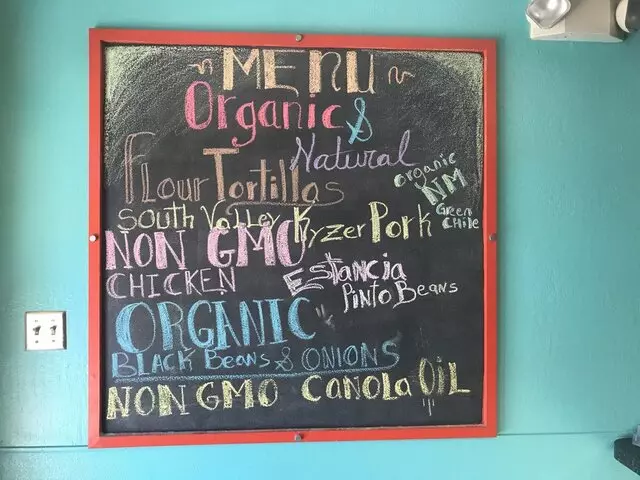 ~ MENU ~
Organic &
Natural
Flour Tortillas
Organic
NM
Green
Chile
South Valley Kyzer Pork
NON GMO
CHICKEN
Estancia
Pinto Beans
ORGANIC
BLACK Beans & ONIONS
NON GMO Canola OIL